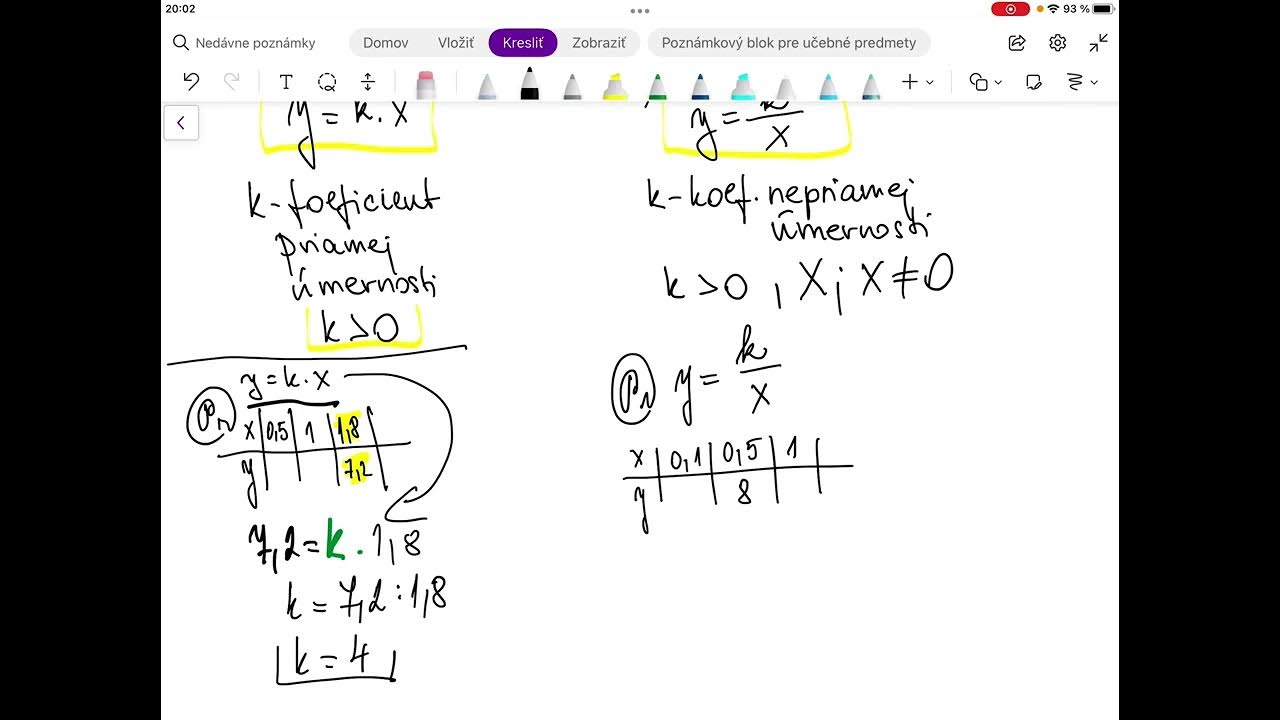 20:02
93 %
Nedávne poznámky
Domov
Vložiť
Kresliť
Zobraziť
Poznámkový blok pre učebné predmety
T
y = k . x
k - foeficient
priamej
úmernosti
k > 0
y = k . x
Pr
x | 0,5 | 1 | 1,8 |
y | | | 7,2 |
7,2 = k . 1,8
k = 7,2 : 1,8
k = 4
y = k/x
k - koef. nepriamej
úmernosti
k > 0 , x ; x ≠ 0
Pr y = k/x
x | 0,1 | 0,5 | 1 |
y | | 8 | |